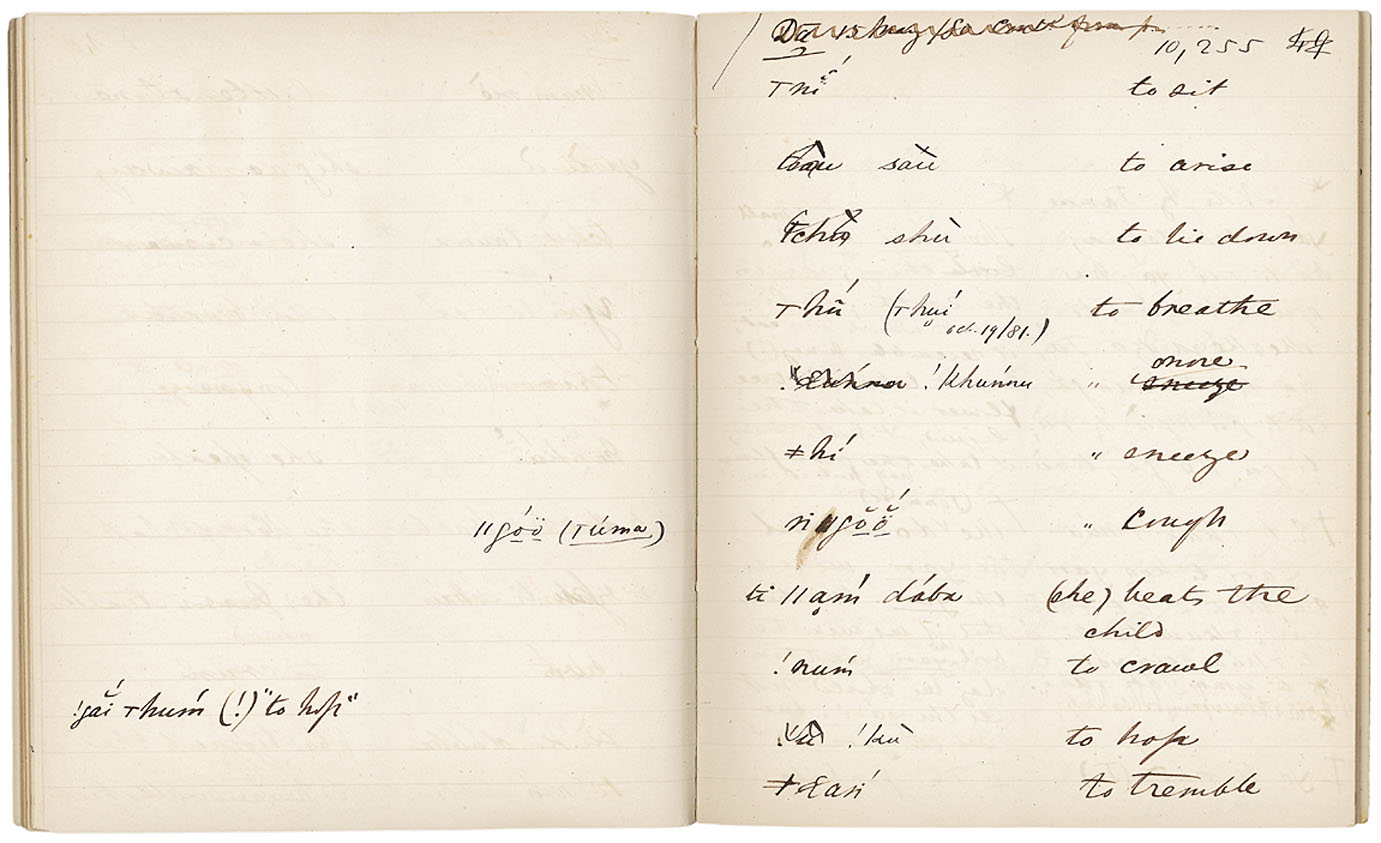 ǁgó̲ö̲ (Túma)
!gắi thuḿ (!) "to hop"
10,255
to sit
sau̇̀ to arise
shu̇̀ to lie down
Thṹ (Thu̥í Oct. 19/81.) to breathe
!khuńnu " snore
ǂhí " sneeze
ǁgŏ̲ŏ̲́ " Cough
ti ǁḁḿ dába (she) beats the
child
!nuḿ to crawl
!kù to hop
to tremble